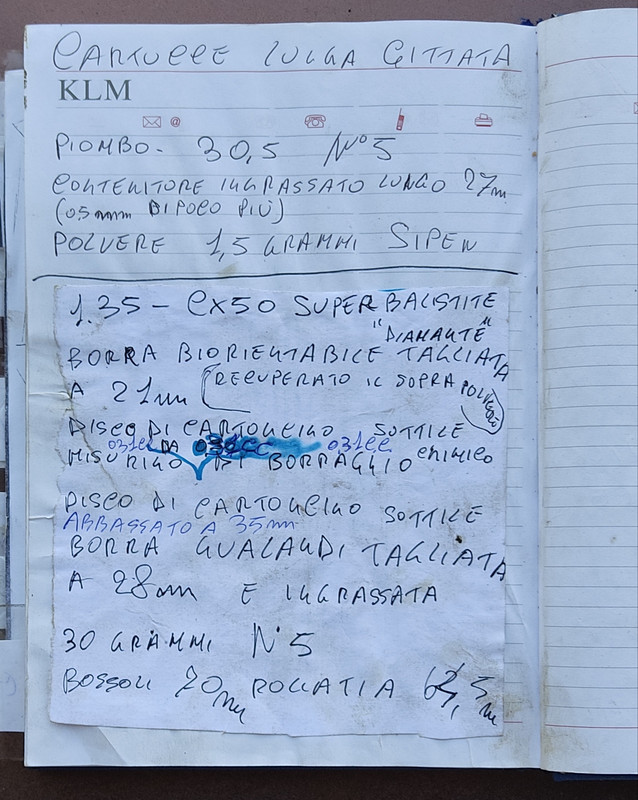 CARTUCCE LULGA GITTATA
KLM
PIOMBO - 30,5 N° 5
CONTENITORE INGRASSATO LUNGO 27m
(0,5 mm DI POCO PIÙ)
POLVERE 1,5 GRAMMI SIPEN
1.35 - CX50 SUPERBALISTITE
"DIAMANTE"
BORRA BIORIENTABILE TAGLIATA
A 21 mm (RECUPERATO IL SOPRA POLVERE)
DISCO DI CARTONCINO SOTTILE
031CC DA 031CC
MISURINO DI BORRAGGIO CHIMICO
DISCO DI CARTONCINO SOTTILE
ABBASSATO A 35mm
BORRA GUALANDI TAGLIATA
A 28mm E INGRASSATA
30 GRAMMI N° 5
BOSSOLI 70 mm ROLLATI A 5 m